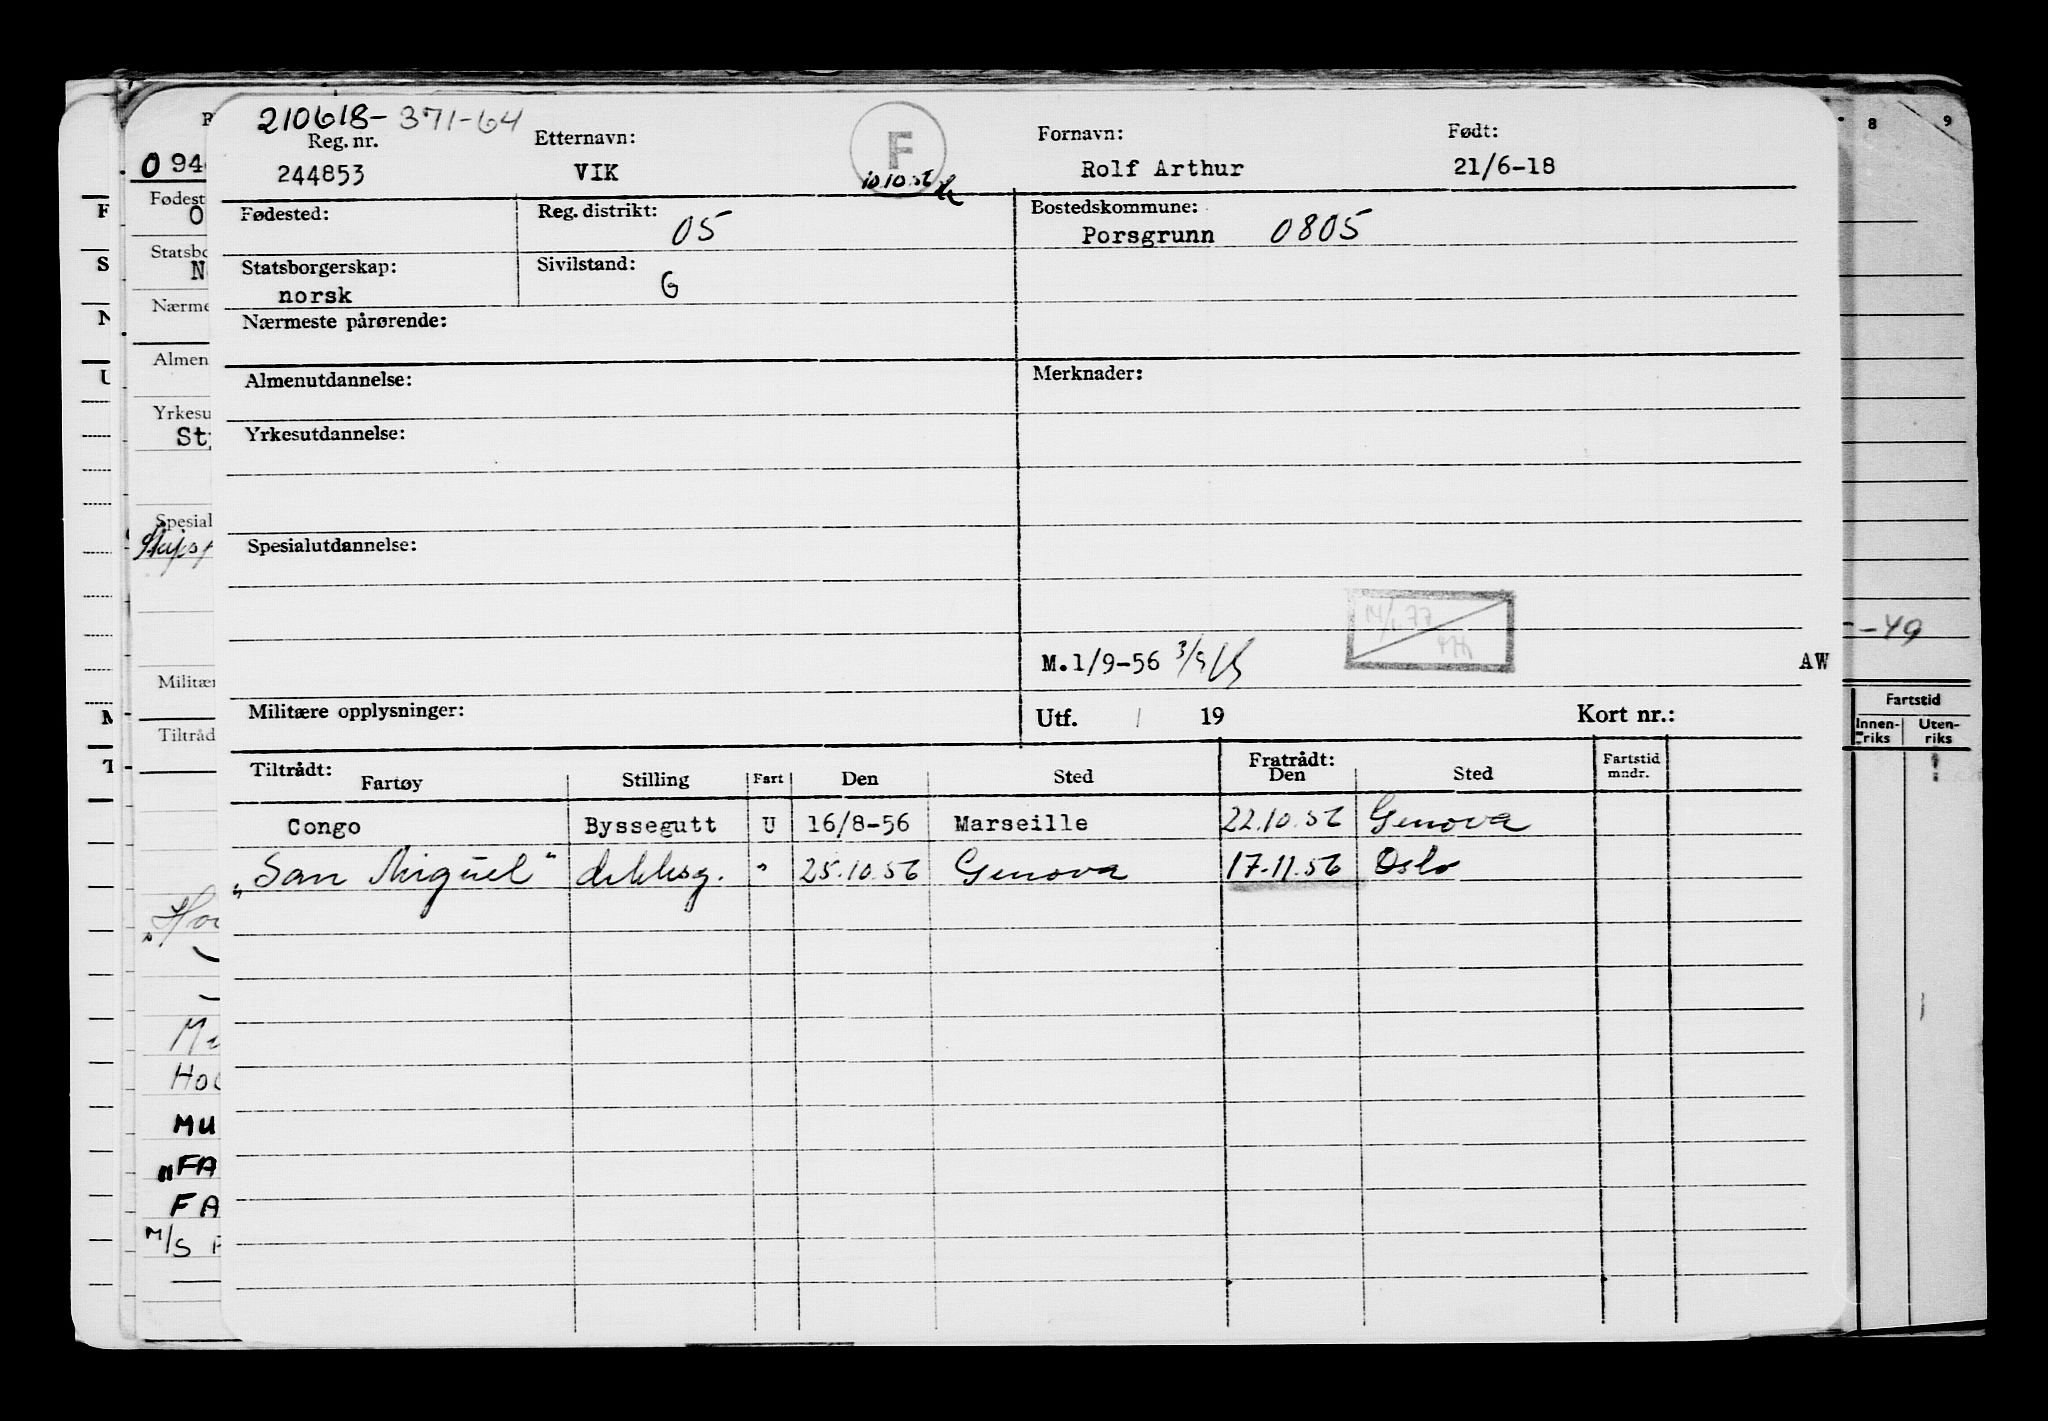 210618-371-64
Reg. nr. Etternavn: F Fornavn: Født:
244853 VIK 10.10.56 Rolf Arthur 21/6-18
Fødested: Reg. distrikt: 05 Bostedskommune: Porsgrunn 0805
Statsborgerskap: norsk Sivilstand: G
Nærmeste pårørende:
Almenutdannelse: Merknader:
Yrkesutdannelse:
Spesialutdannelse:
M.1/9-56 AW
Militære opplysninger: Utf. / 19 Kort nr.:
Tiltrådt: Fratrådt: Fartstid mndr.
Fartøy Stilling Fart Den Sted Den Sted
Congo Byssegutt U 16/8-56 Marseille 22.10.56 Genova
"San Miguel" dekksg. " 25.10.56 Genova 17.11.56 Oslo
0 94
Fødest
O
Statsbo
N
Nærme
Almen
Yrkesu
St
Spesial
Militær
Tiltråd
"Ho
Mu
Hо
MU
"FA
FA
M/S
8 9
-49
Fartstid
Innen-riks Uten-riks